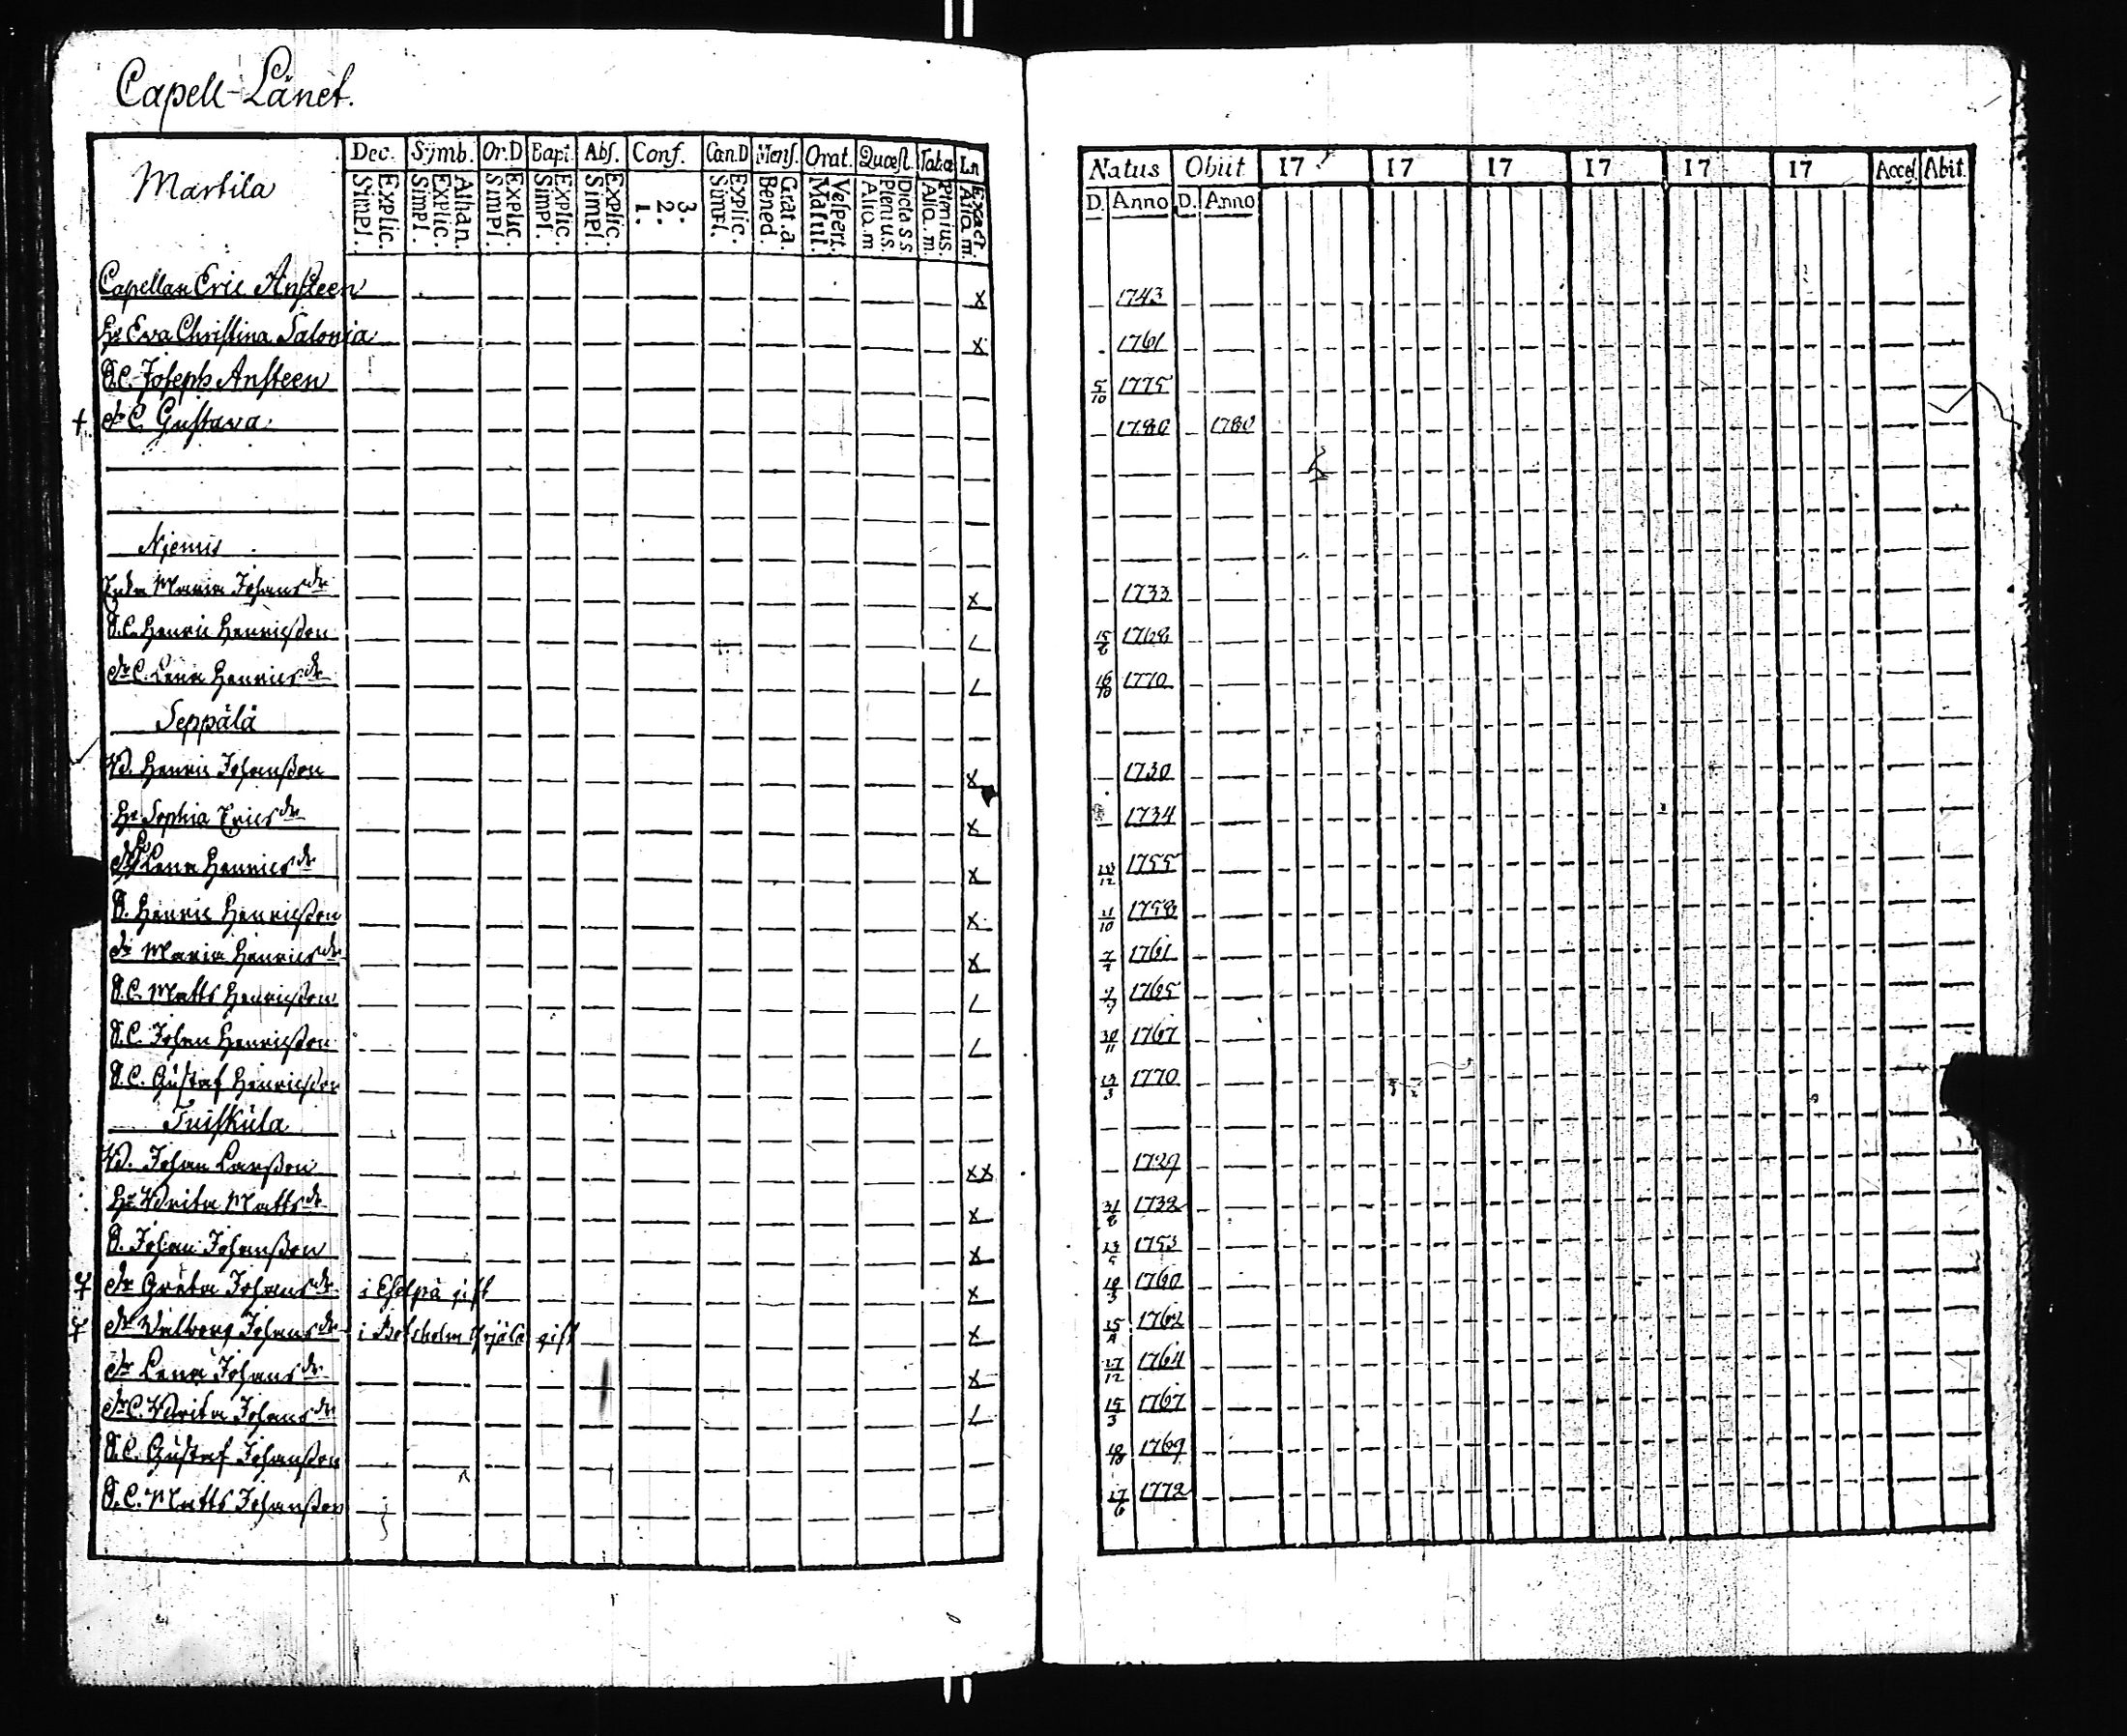 Capell-Länet.
Martila
Dec. Symb. Or.D Bapt. Abs. Conf. Can.D Mens. Orat. Quæst. Tab.œ Ln
Explic. Simpl. Athan. Explic. Simpl. Explic. Simpl. Explic. Simpl. Explic. Simpl. 3. 2. 1. Explic. Simpl. Grat.a. Bened. Vespert. Matut. Dicta SS Plenius. Aliq.m Plenius. Aliq.m. Exact. Aliq.m.
Natus Obiit 17 17 17 17 17 17 Acces Abit.
D. Anno D. Anno
Capellan Eric Ansteen x 1743
Hr Eva Christina Salonia x 1761
S.C. Joseph Ansteen 5/10 1775
+ dr C. Gustava 1780 1780
Njemis
Enka Maria Johans dr x 1733
S.C. Henric Henricsson L 15/6 1768
dr C. Lena Henrics dr L 16/10 1770
Seppälä
Bd. Henric Johansson x 1730
Hr Sophia Erics dr x 1734
dr Lena Henrics dr x /12 1755
S. Henric Henricsson x 11/10 1758
dr Maria Henrics dr x 1761
S.C. Matts Henricsson L 1765
S.C. Johan Henricsson L 30/11 1767
S.C. Gustaf Henricsson /3 1770
Tuiskula
Bd. Johan Larsson xx 1729
Hr Brita Matts dr x 31/8 1732
S. Johan Johansson x 23/5 1753
dr Greta Johans dr i gift x 18/3 1760
dr Walborg Johans dr i gift x 1762
dr Lena Johans dr x 27/12 1764
dr C. Brita Johans dr L 15/3 1767
S.C. Gustaf Johansson 1769
S.C. Matts Johansson 17/6 1772